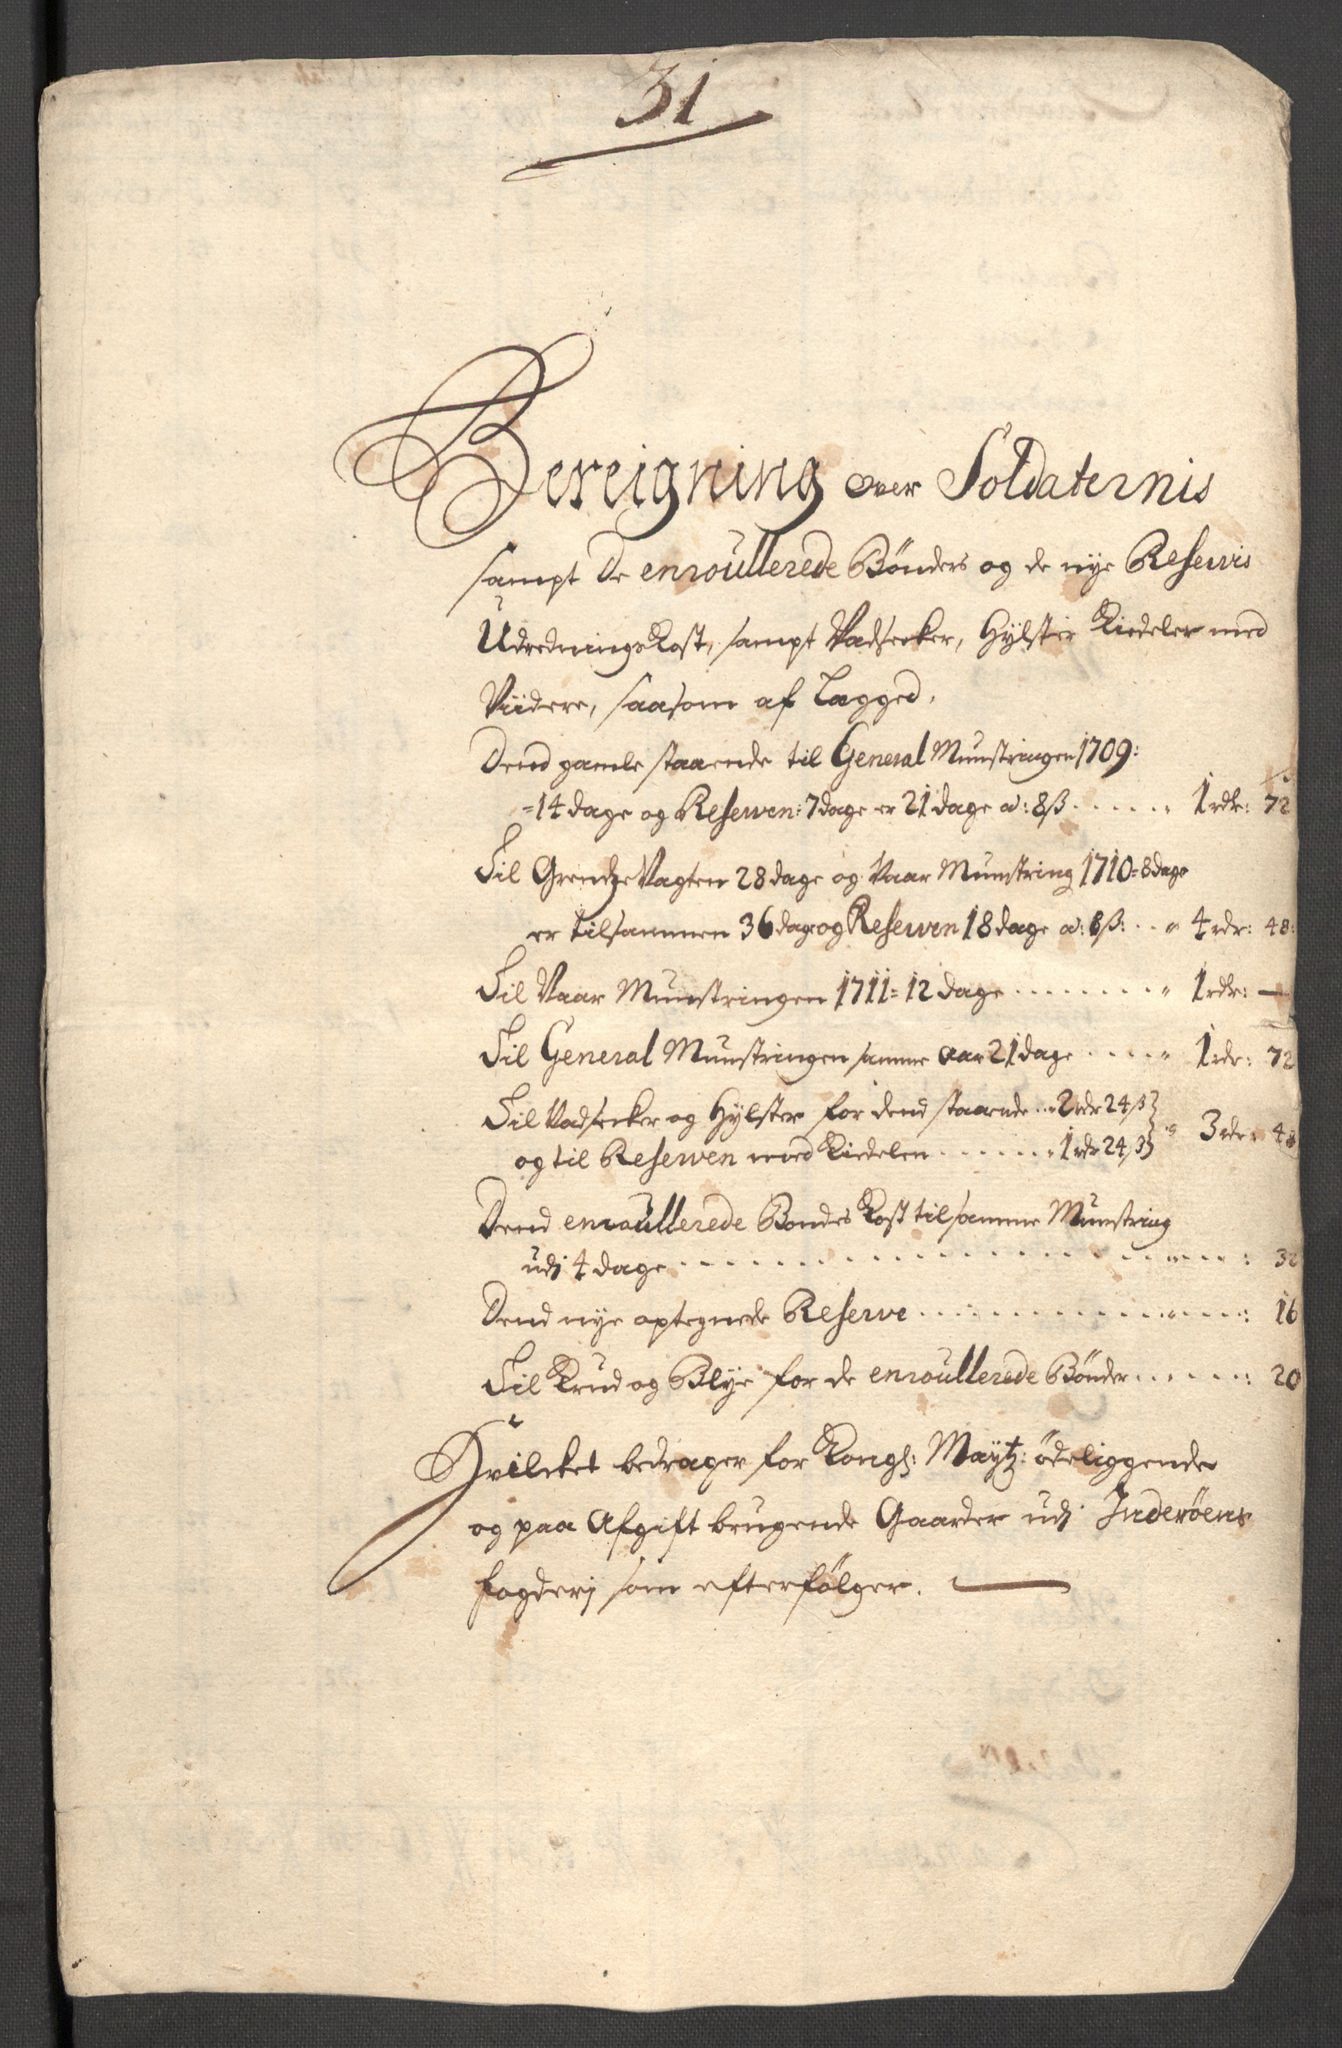 31
Bereigning over Soldaternis
sampt De enroullerede Bønders og de nye Reservis
Udrednings Kost, sampt Vadsecker, Hylster Kiedeler med
Viidere, saasom af Lægged,
Dend gamle staaende til General Munstringen 1709:
=14 dage og Reserven: 7 dage er 21 dage a: 8ß ...... 1 rdr: 72
Til Grendze Vagten 28 dage og Vaar Munstring 1710 = 8 dage
er tilsammen 36 dage og Reserven 18 dage a: 8ß: .. 4 rdr: 48:
Til Vaar Munstringen 1711 = 12 dage ........ 1 rdr: —
Til General Munstringen samme aar 21 dage ..... 1 rdr: 72
Til Vadsecker og Hylster for dend staaende .. 2 rdr 24 ß } 3 rdr: 48
og til Reserven med Kiedelen ....... 1 rdr 24 ß }
Dend enroullerede Bondes Kost til samme Munstring
udj 4 dage .................... : 32
Dend nye optegnede Reserve .............. : 16
Til Krud og Blye for de enroullerede Bønder ...... : 20
Hvilcket bedrager for Kongl: Maytz: ødeliggende
og paa Afgift brugende Gaarder udj Inderøens
fogderj som efterfølger. —